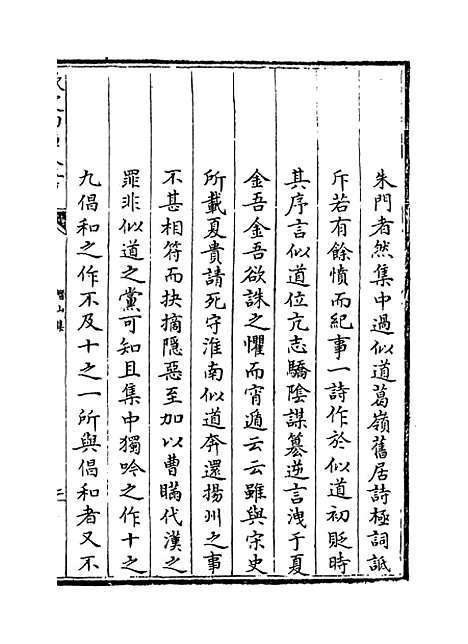 朱門者然集中過似道葛嶺舊居詩極詞詆
斥若有餘憤而紀事一詩作於似道初貶時
其序言似道位亢志驕陰謀篡逆言洩于夏
金吾金吾欲誅之懼而宵遁云云雖與宋史
所載夏貴請死守淮南似道奔還揚州之事
不甚相符而抉摘隱惡至加以曹瞞代漢之
罪非似道之黨可知且集中獨吟之作十之
九倡和之作不及十之一所與倡和者又不
潛山集